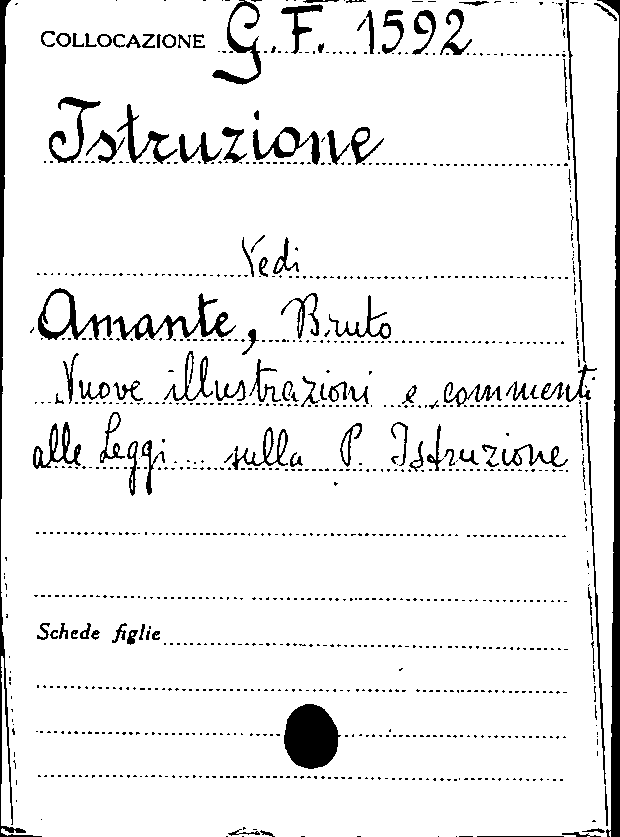 COLLOCAZIONE G.F. 1592
Istruzione
Vedi
Amante, Bruto
Nuove illustrazioni e commenti
alle Leggi... sulla P. Istruzione
Schede figlie